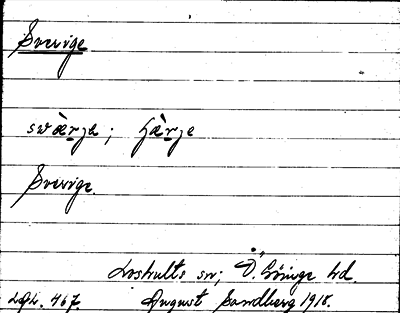 Sverige
swàrje; 
Sverige.
Loshults sn; Ö. Göinge hd.
467. August Sandberg 1918.